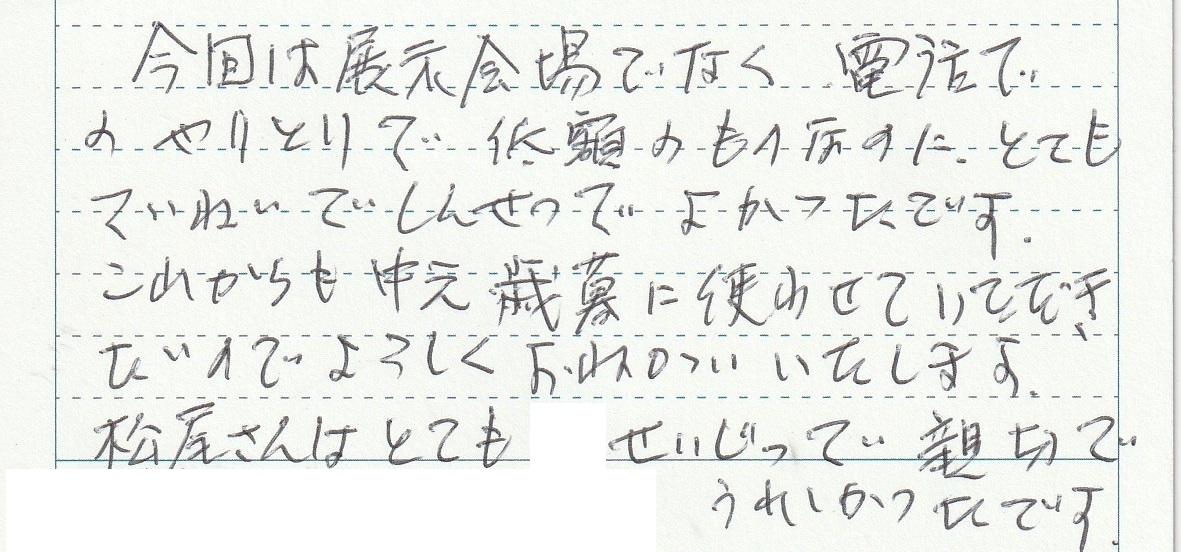 今回は展示会場でなく 電話で
のやりとりで 低額のものなのに、とても
ていねいでしんせつで よかったです.
これからも 中元 歳暮に使わせていただき
たいので よろしく おねがい いたします.
松尾さんは とても せいじつで 親切で
うれしかったです.